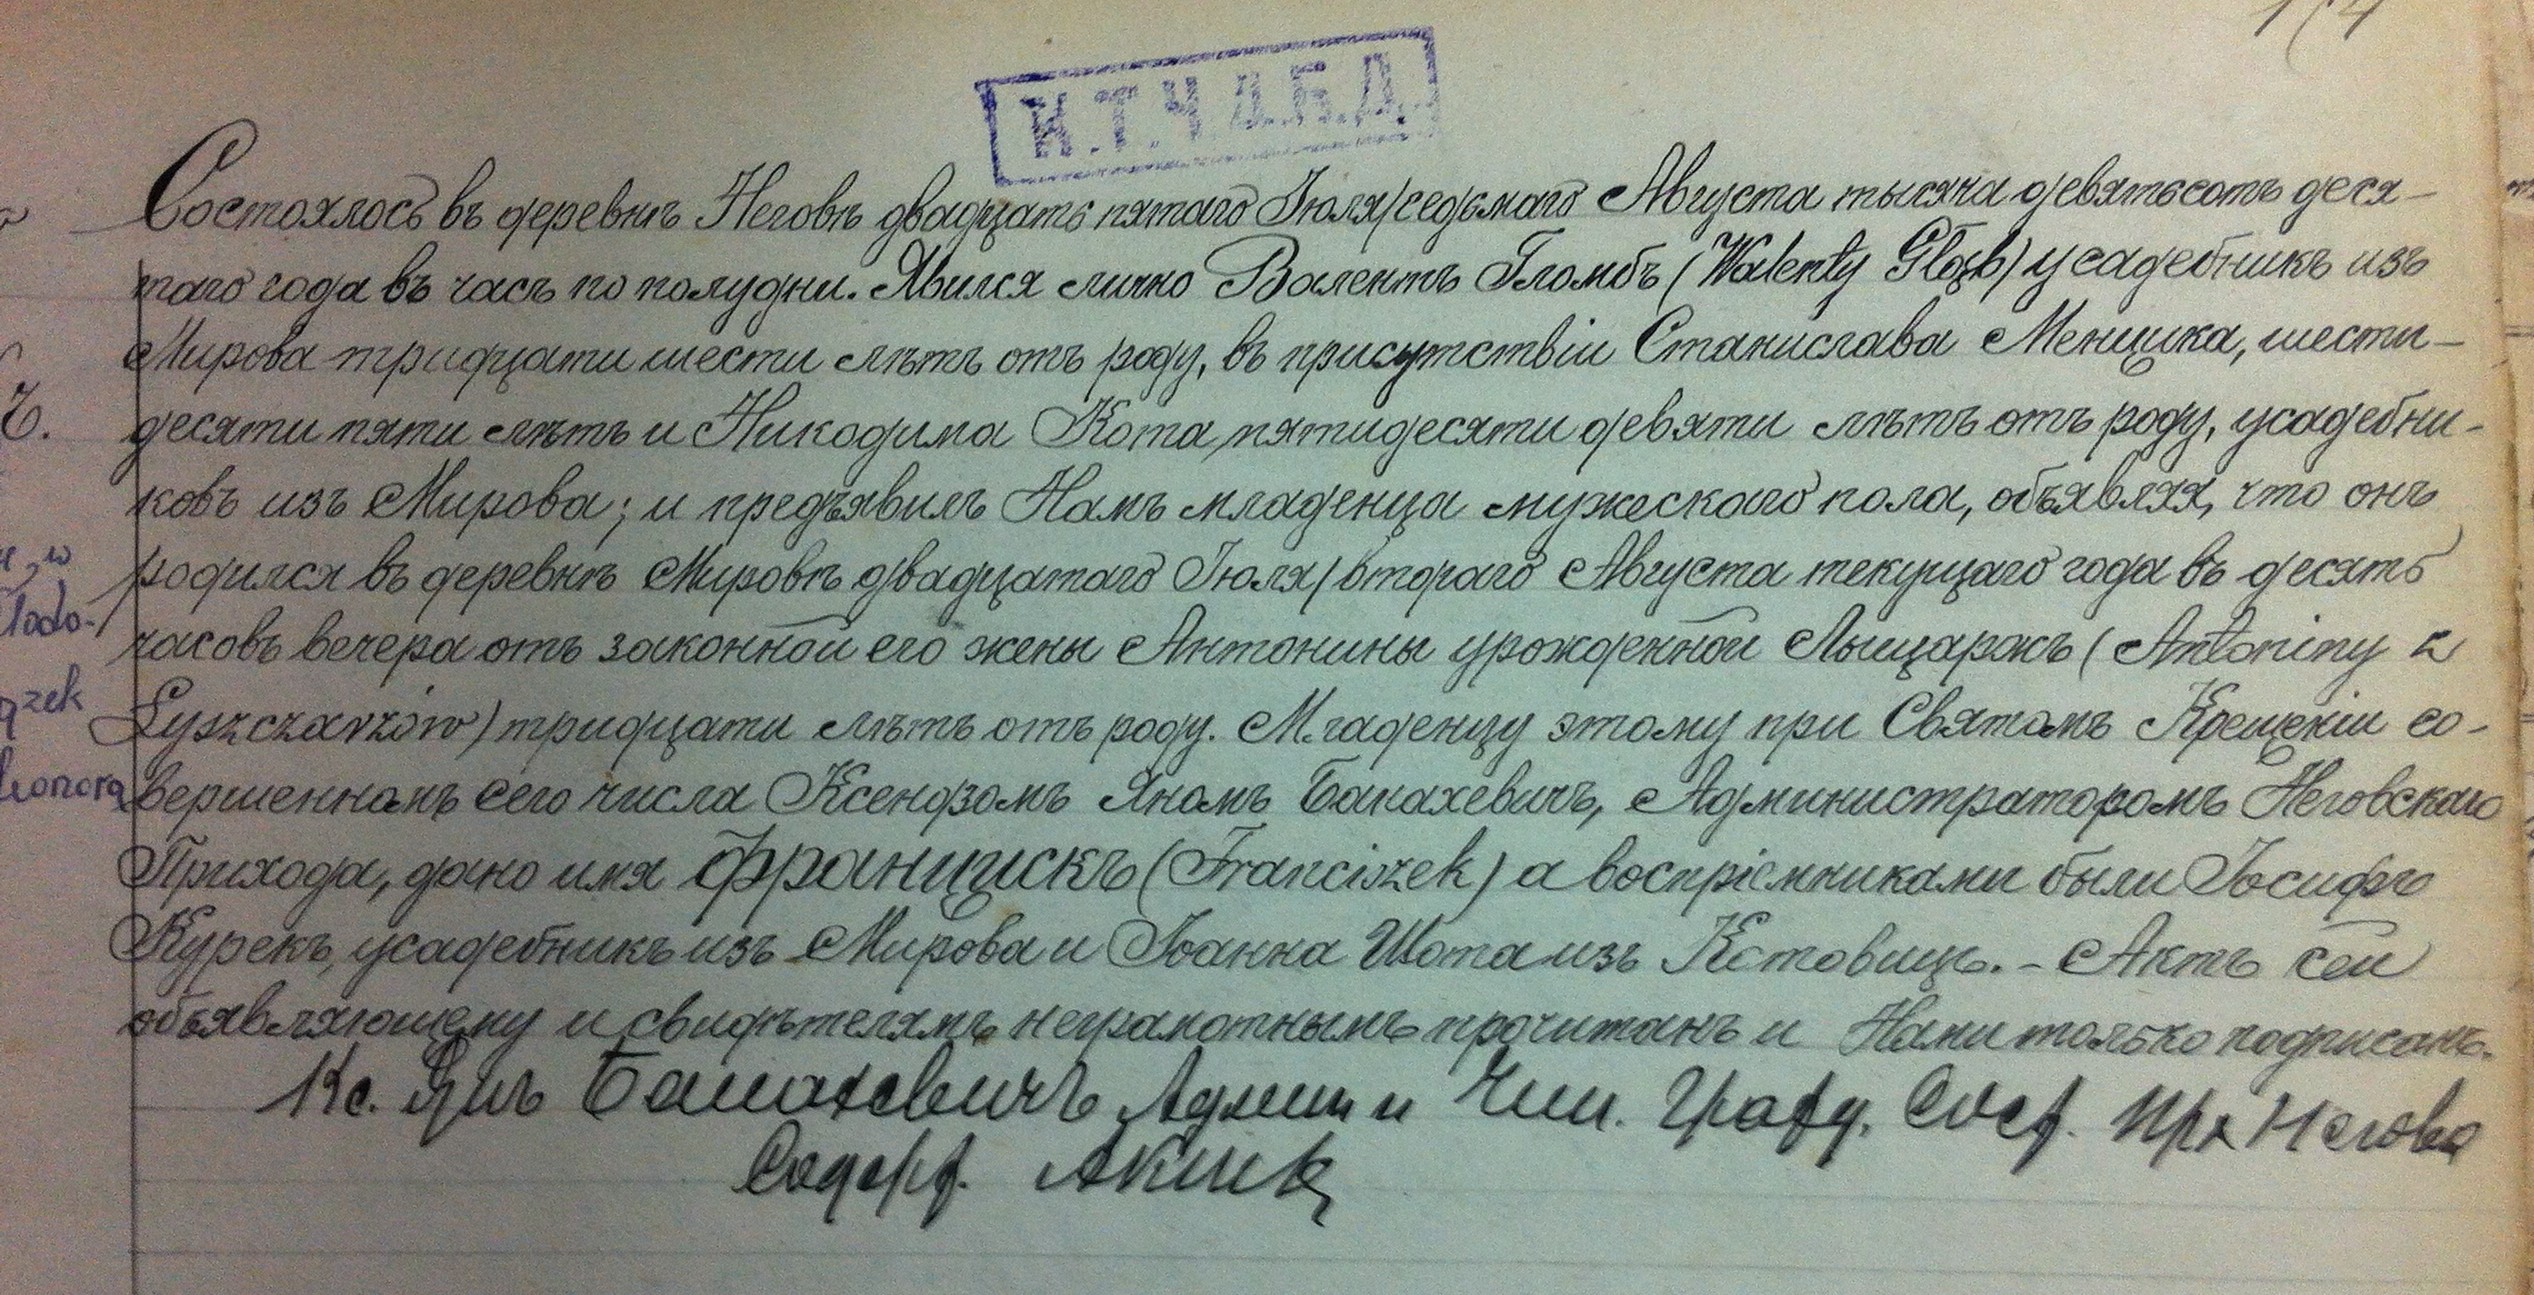 К.Т.Ч.Д.Б.Д.
Состоялось въ деревнѣ Неговѣ двадцать пятаго Іюля/седьмаго Августа тысяча девятьсотъ деся-
таго года въ часъ по полудни. Явился лично Валентъ Гломбъ (Walenty Głąb) усадебникъ изъ
Мирова тридцати шести лѣтъ отъ роду, въ присутствіи Станислава Менцика, шести-
десяти пяти лѣтъ и Никодима Кота, пятидесяти девяти лѣтъ отъ роду, усадебни-
ковъ изъ Мирова; и предъявилъ Намъ младенца мужескаго пола, объявляя, что онъ
родился въ деревнѣ Мировѣ двадцатаго Іюля/втораго Августа текущаго года въ десять
Młodo-
часовъ вечера отъ законной его жены Антонины урожденной Лыщаржъ (Antoniny z
Łyszczarzów) тридцати лѣтъ отъ роду. Младенцу этому при Святомъ Крещеніи со-
вершенномъ сего числа Ксендзомъ Яномъ Банахевичъ, Администраторомъ Неговскаго
Прихода, дано имя Францискъ (Franciszek) а воспріемниками были Іосифъ
Курекъ, усадебникъ изъ Мирова и Іоанна Шота изъ Котовицъ. - Актъ сей
объявляющему и свидѣтелямъ неграмотнымъ прочитанъ и Нами только подписанъ.
Кс. Янъ Банахевичъ Админ и Чин. Гражд. Сост. Прх Негова
Содерж. Акты